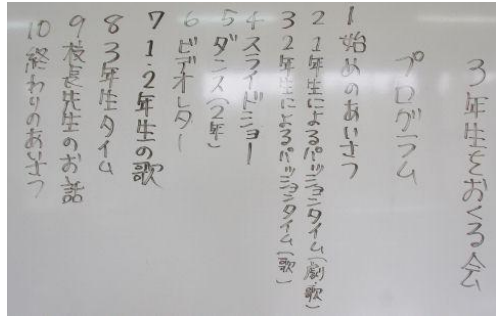 3年生をおくる会
プログラム
1 始めのあいさつ
2 1年生によるパッションタイム(劇・歌)
3 2年生によるパッションタイム(歌)
4 スライドショー
5 ダンス(2年)
6 ビデオレター
7 1・2年生の歌
8 3年生タイム
9 校長先生のお話
10 終わりのあいさつ